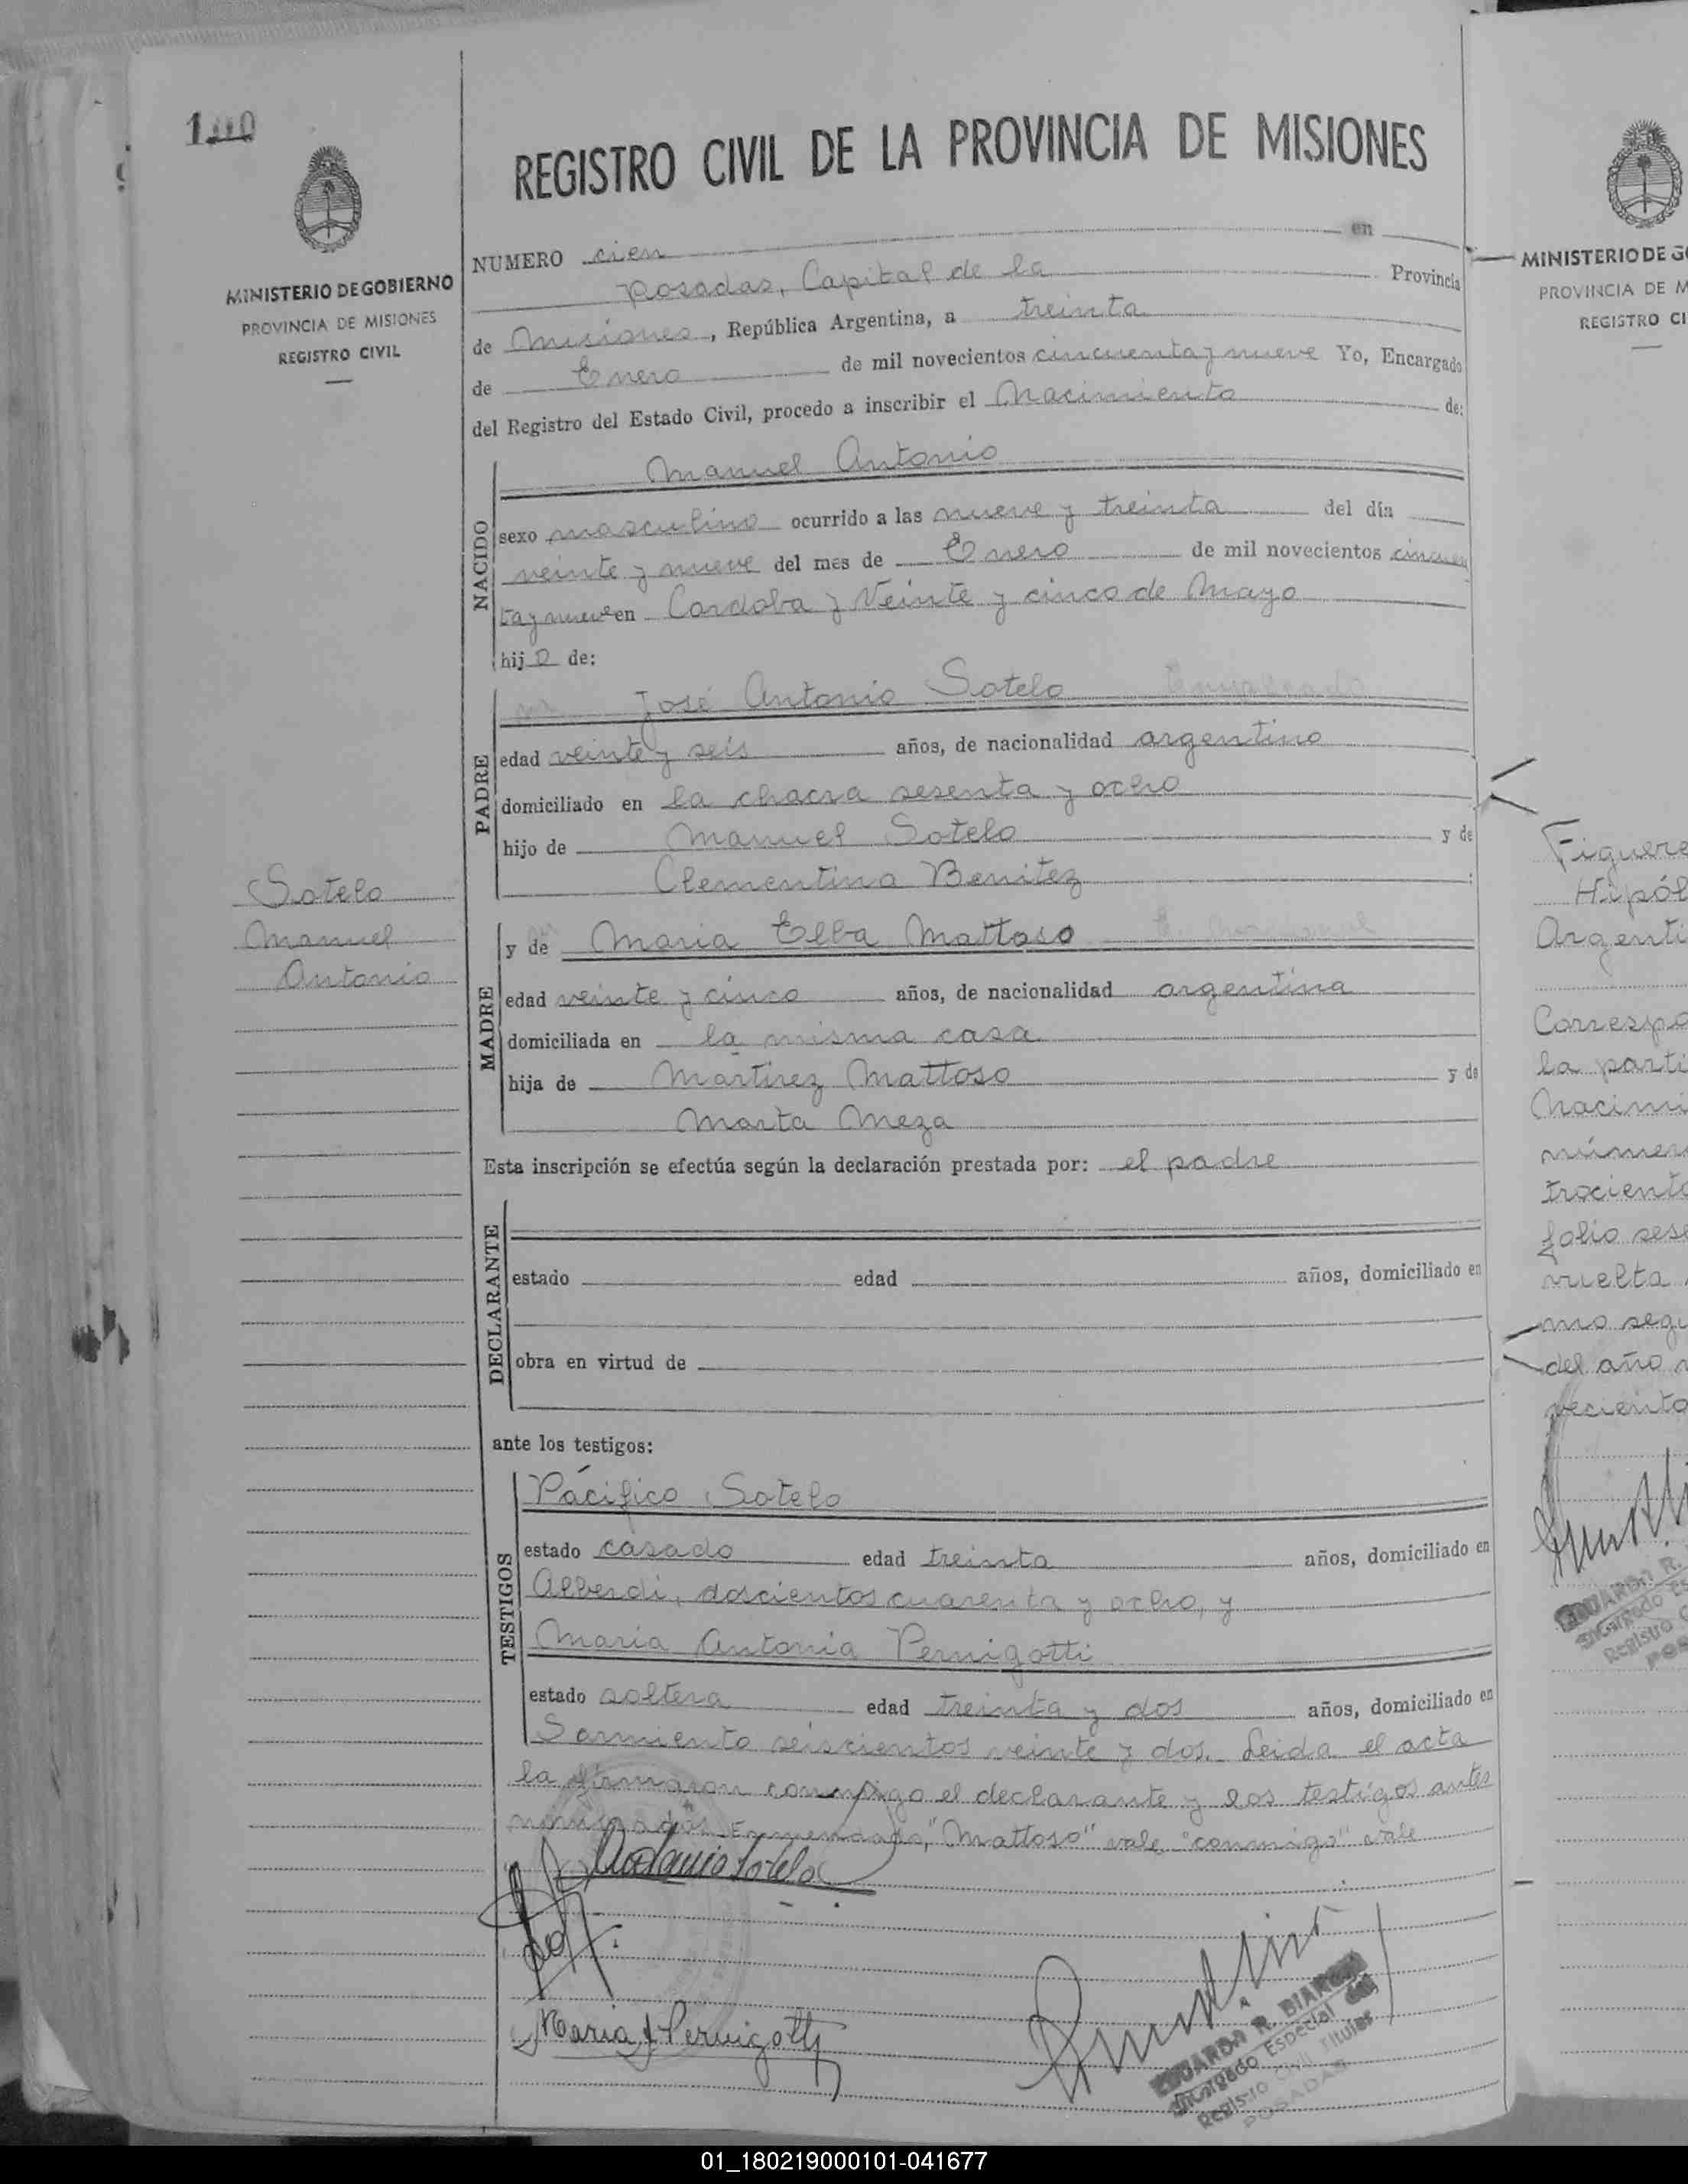 100
MINISTERIO DE GOBIERNO
PROVINCIA DE MISIONES
REGISTRO CIVIL
REGISTRO CIVIL DE LA PROVINCIA DE MISIONES
NUMERO cien en
Posadas, Capital de la Provincia
de Misiones, República Argentina, a treinta
de Enero de mil novecientos cincuenta y nueve Yo, Encargado
del Registro del Estado Civil, procedo a inscribir el Nacimiento de:
NACIDO
Manuel Antonio
sexo masculino ocurrido a las nueve y treinta del día
veinte y nueve del mes de Enero de mil novecientos cincuen
ta y nueve en Cordoba y Veinte y cinco de Mayo
hijo de:
PADRE
José Antonio Sotelo Empleado
edad veinte y seis años, de nacionalidad argentino
domiciliado en la chacra sesenta y ocho
hijo de Manuel Sotelo y de
Clementina Benitez
Sotelo
Manuel
Antonio
MADRE
y de Maria Elba Mattoso
edad veinte y cinco años, de nacionalidad argentina
domiciliada en la misma casa
hija de Martirez Mattoso y de
Marta Meza
Esta inscripción se efectúa según la declaración prestada por: el padre
DECLARANTE
estado edad años, domiciliado en
obra en virtud de
ante los testigos:
TESTIGOS
Pácifico Sotelo
estado casado edad treinta años, domiciliado en
Alberdi, doscientos cuarenta y ocho, y
Maria Antonia Pernigotti
estado soltera edad treinta y dos años, domiciliado en
Sarmiento seiscientos veinte y dos. Leida el acta
la firmaron conmigo el declarante y los testigos antes
nominados. Enmendado, "Mattoso" vale "conmigo" vale
Antonio Sotelo
Maria A Pernigotti
EDUARDO R. BIANCHI
Encargado Especial del
Registro Civil Titular
POSADAS
MINISTERIO DE GO
PROVINCIA DE M
REGISTRO CI
Figuere
Hipól
Argenti
Correspo
la parti
Nacimi
número
trociento
folio sese
vuelta
mo segu
del año
veciento
EDUARDO R.
Encargado Es
Registro C
POS
01_180219000101-041677